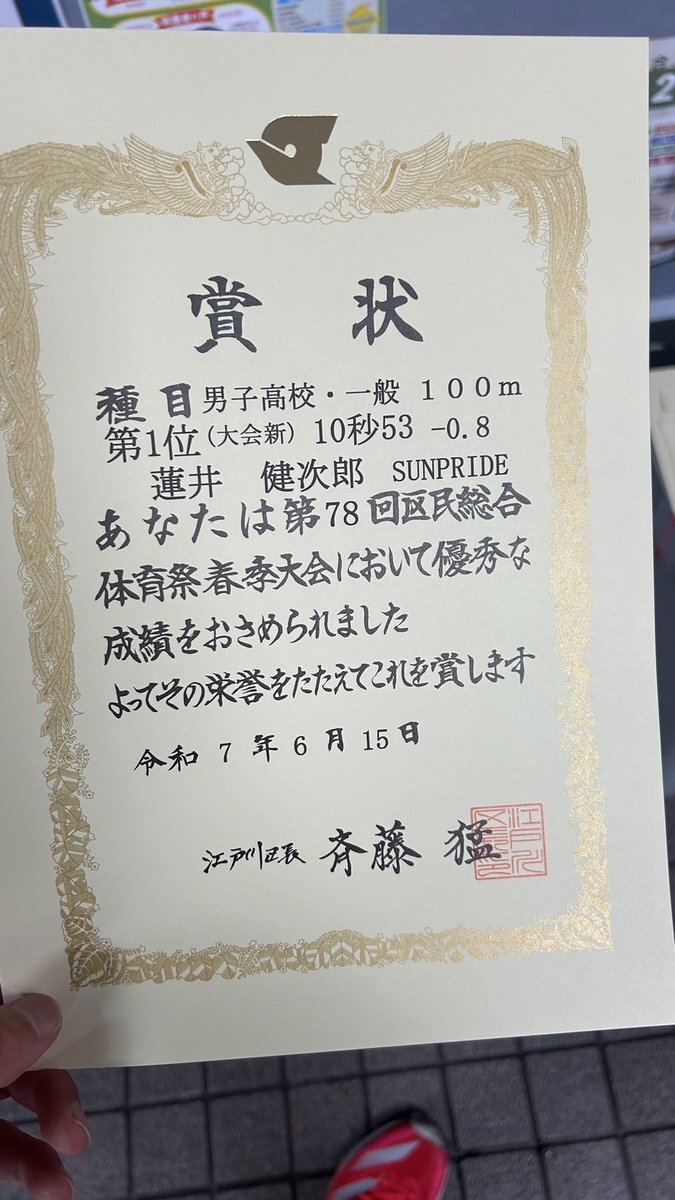 賞状
種目 男子高校・一般 １００ｍ
第1位(大会新) 10秒53 -0.8
蓮井 健次郎 SUNPRIDE
あなたは第78回区民総合
体育祭春季大会において優秀な
成績をおさめられました
よってその栄誉をたたえてこれを賞します
令和 7 年 6 月 15 日
江戸川区長 斉藤 猛